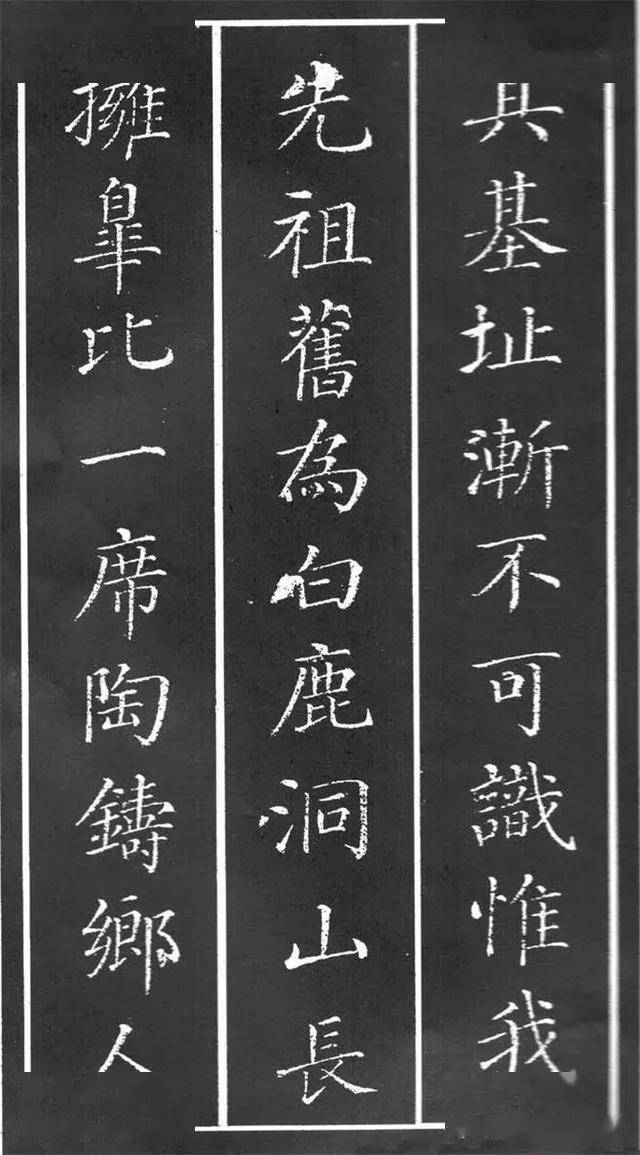 其基址漸不可識惟我
先祖舊為白鹿洞山長
擁臯比一席陶鑄鄉人